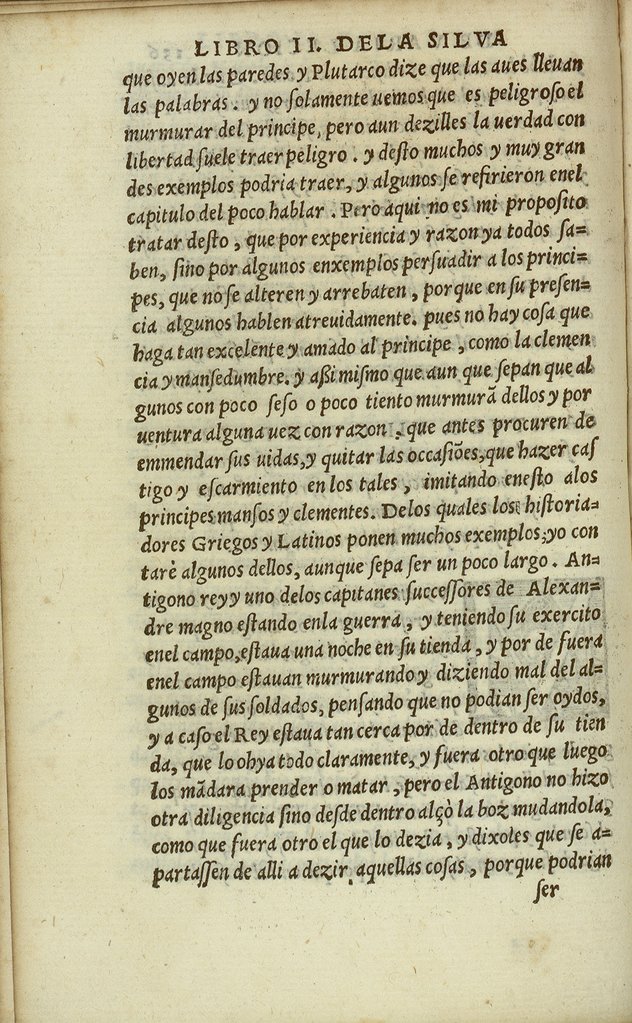 LIBRO II. DELA SILVA
que oyen las paredes y Plutarco dize que las aues lleuan
las palabras. y no ſolamente uemos que es peligroſo el
murmurar del principe, pero aun dezilles la uerdad con
libertad ſuele traer peligro. y deſto muchos y muy gran
des exemplos podria traer, y algunos ſe refirieron enel
capitulo del poco hablar. Pero aqui no es mi propoſito
tratar deſto, que por experiencia y razon ya todos ſa=
ben, ſino por algunos enxemplos perſuadir a los princi=
pes, que no ſe alteren y arrebaten, porque en ſu preſen=
cia algunos hablen atreuidamente. pues no hay coſa que
haga tan excelente y amado al principe, como la clemen
cia y manſedumbre. y aßi miſmo que aun que ſepan que al
gunos con poco ſeſo o poco tiento murmurã dellos y por
uentura alguna uez con razon, que antes procuren de
emmendar ſus uidas, y quitar las occaſiões, que hazer caſ
tigo y eſcarmiento en los tales, imitando eneſto alos
principes manſos y clementes. Delos quales los hiſtoria=
dores Griegos y Latinos ponen muchos exemplos, yo con
tarè algunos dellos, aunque ſepa ſer un poco largo. An=
tigono rey y uno delos capitanes ſucceſſores de Alexan=
dre magno eſtando enla guerra, y teniendo ſu exercito
enel campo, eſtaua una noche en ſu tienda, y por de fuera
enel campo eſtauan murmurando y diziendo mal del al=
gunos de ſus ſoldados, penſando que no podian ſer oydos,
y a caſo el Rey eſtaua tan cerca por de dentro de ſu tien
da, que lo ohya todo claramente, y fuera otro que luego
los mãdara prender o matar, pero el Antigono no hizo
otra diligencia ſino deſde dentro alçò la boz mudandola,
como que fuera otro el que lo dezia, y dixoles que ſe a=
partaſſen de alli a dezir aquellas coſas, porque podrian
ſer